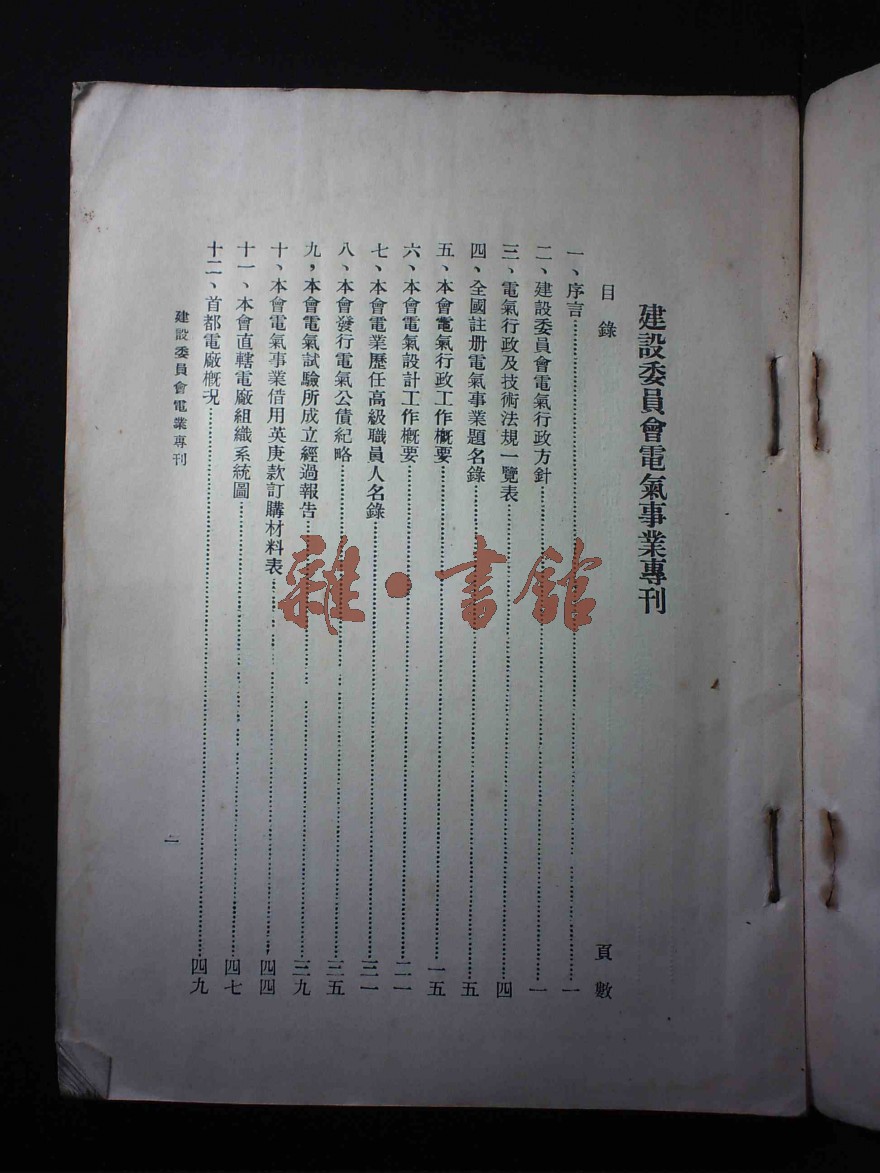 建設委員會電氣事業專刊
目錄 頁數
一、序言 一
二、建設委員會電氣行政方針 一
三、電氣行政及技術法規一覽表 四
四、全國註册電氣事業題名錄 五
五、本會電氣行政工作概要 一五
六、本會電氣設計工作概要 二一
七、本會電業歷任高級職員人名錄 三一
八、本會發行電氣公債紀略 三五
九，本會電氣試驗所成立經過報告 三九
十、本會電氣事業借用英庚款訂購材料表 四四
十一、本會直轄電廠組織系統圖 四七
十二、首都電廠概况 四九
建設委員會電業專刊 一
雜·書館